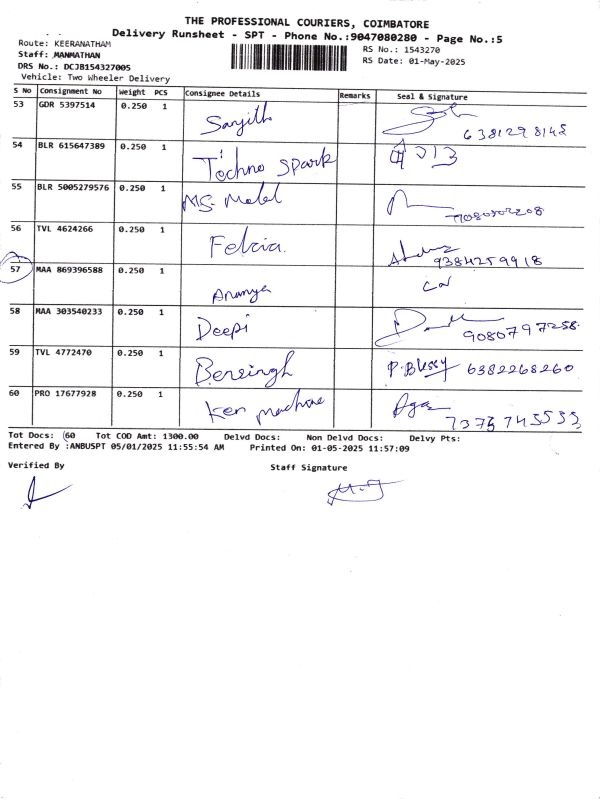 THE PROFESSIONAL COURIERS, COIMBATORE
Delivery Runsheet - SPT - Phone No.:9047080280 - Page No.:5
Route: KEERANATHAM
RS No.: 1543270
Staff: MANMATHAN
RS Date: 01-May-2025
DRS No.: DCJB154327005
Vehicle: Two Wheeler Delivery
S No Consignment No Weight PCS Consignee Details Remarks Seal & Signature
53 GDR 5397514 0.250 1 Sanjith 6381298148
54 BLR 615647389 0.250 1 Techno Spark
55 BLR 5005279576 0.250 1 MS. 
56 TVL 4624266 0.250 1 Felcia. 9384259918
57 MAA 869396588 0.250 1 Ananya
58 MAA 303540233 0.250 1 Deepi 9080797258
59 TVL 4772470 0.250 1 Bersingh P. Blessy 6382268260
60 PRO 17677928 0.250 1 Ken machine
Tot Docs: 60 Tot COD Amt: 1300.00 Delvd Docs: Non Delvd Docs: Delvy Pts:
Entered By :ANBUSPT 05/01/2025 11:55:54 AM Printed On: 01-05-2025 11:57:09
Verified By Staff Signature